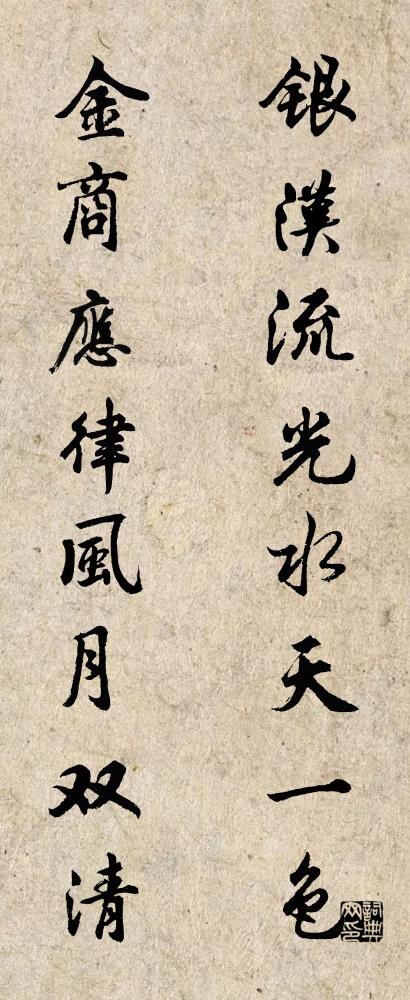 銀漢流光水天一色
金商應律風月双清
詞典网印